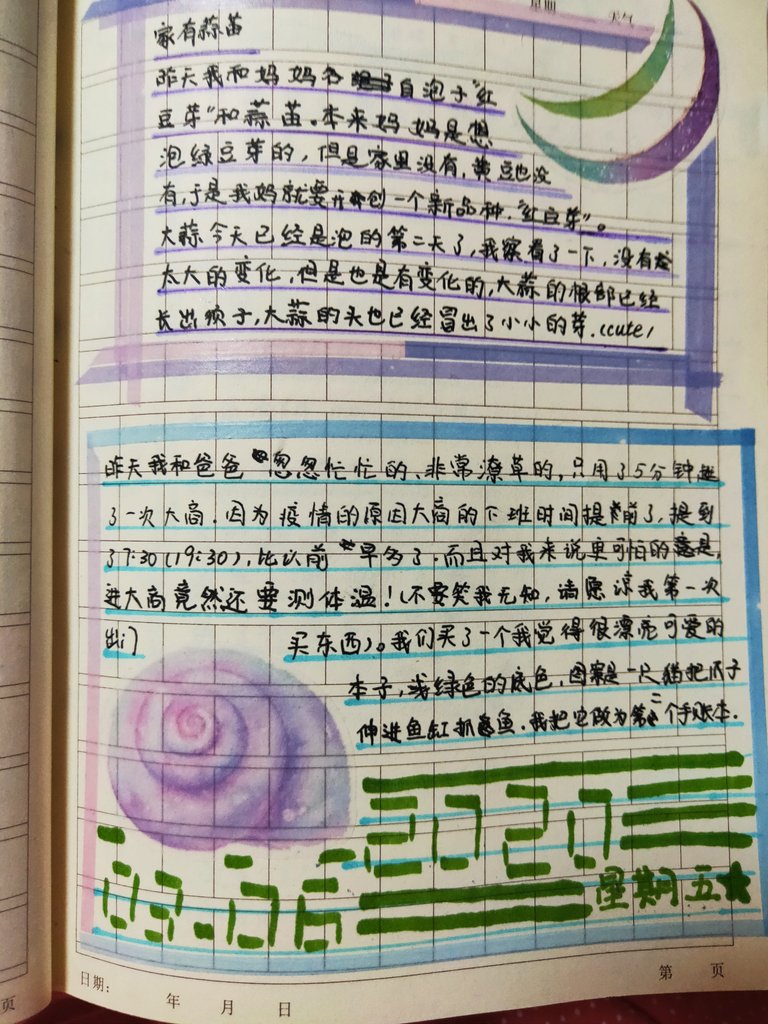 星期 天气
家有蒜苗
昨天我和妈妈各自泡了"红
豆芽"和蒜苗。本来妈妈是想
泡绿豆芽的,但是家里没有,黄豆也没
有,于是我妈就要开创一个新品种."红豆芽"。
大蒜今天已经是泡的第二天了,我察看了一下,没有
太大的变化,但是也是有变化的,大蒜的根部已经
长出须子,大蒜的头也已经冒出了小小的芽.(cute)
昨天我和爸爸忽忽忙忙的、非常潦草的,只用了5分钟逛
了一次大商.因为疫情的原因大商的下班时间提前了,提到
37:30(19:30),比以前早多了.而且对我来说更可怕的是,
进大商竟然还要测体温!(不要笑我无知,请愿谅我第一次
出门 买东西)。我们买了一个我觉得很漂亮可爱的
本子,浅绿色的底色,图案是一只猫把爪子
伸进鱼缸抓鱼.我把它做为第二个手账本.
2020
03.06 星期五★
日期: 年 月 日 第 页
页